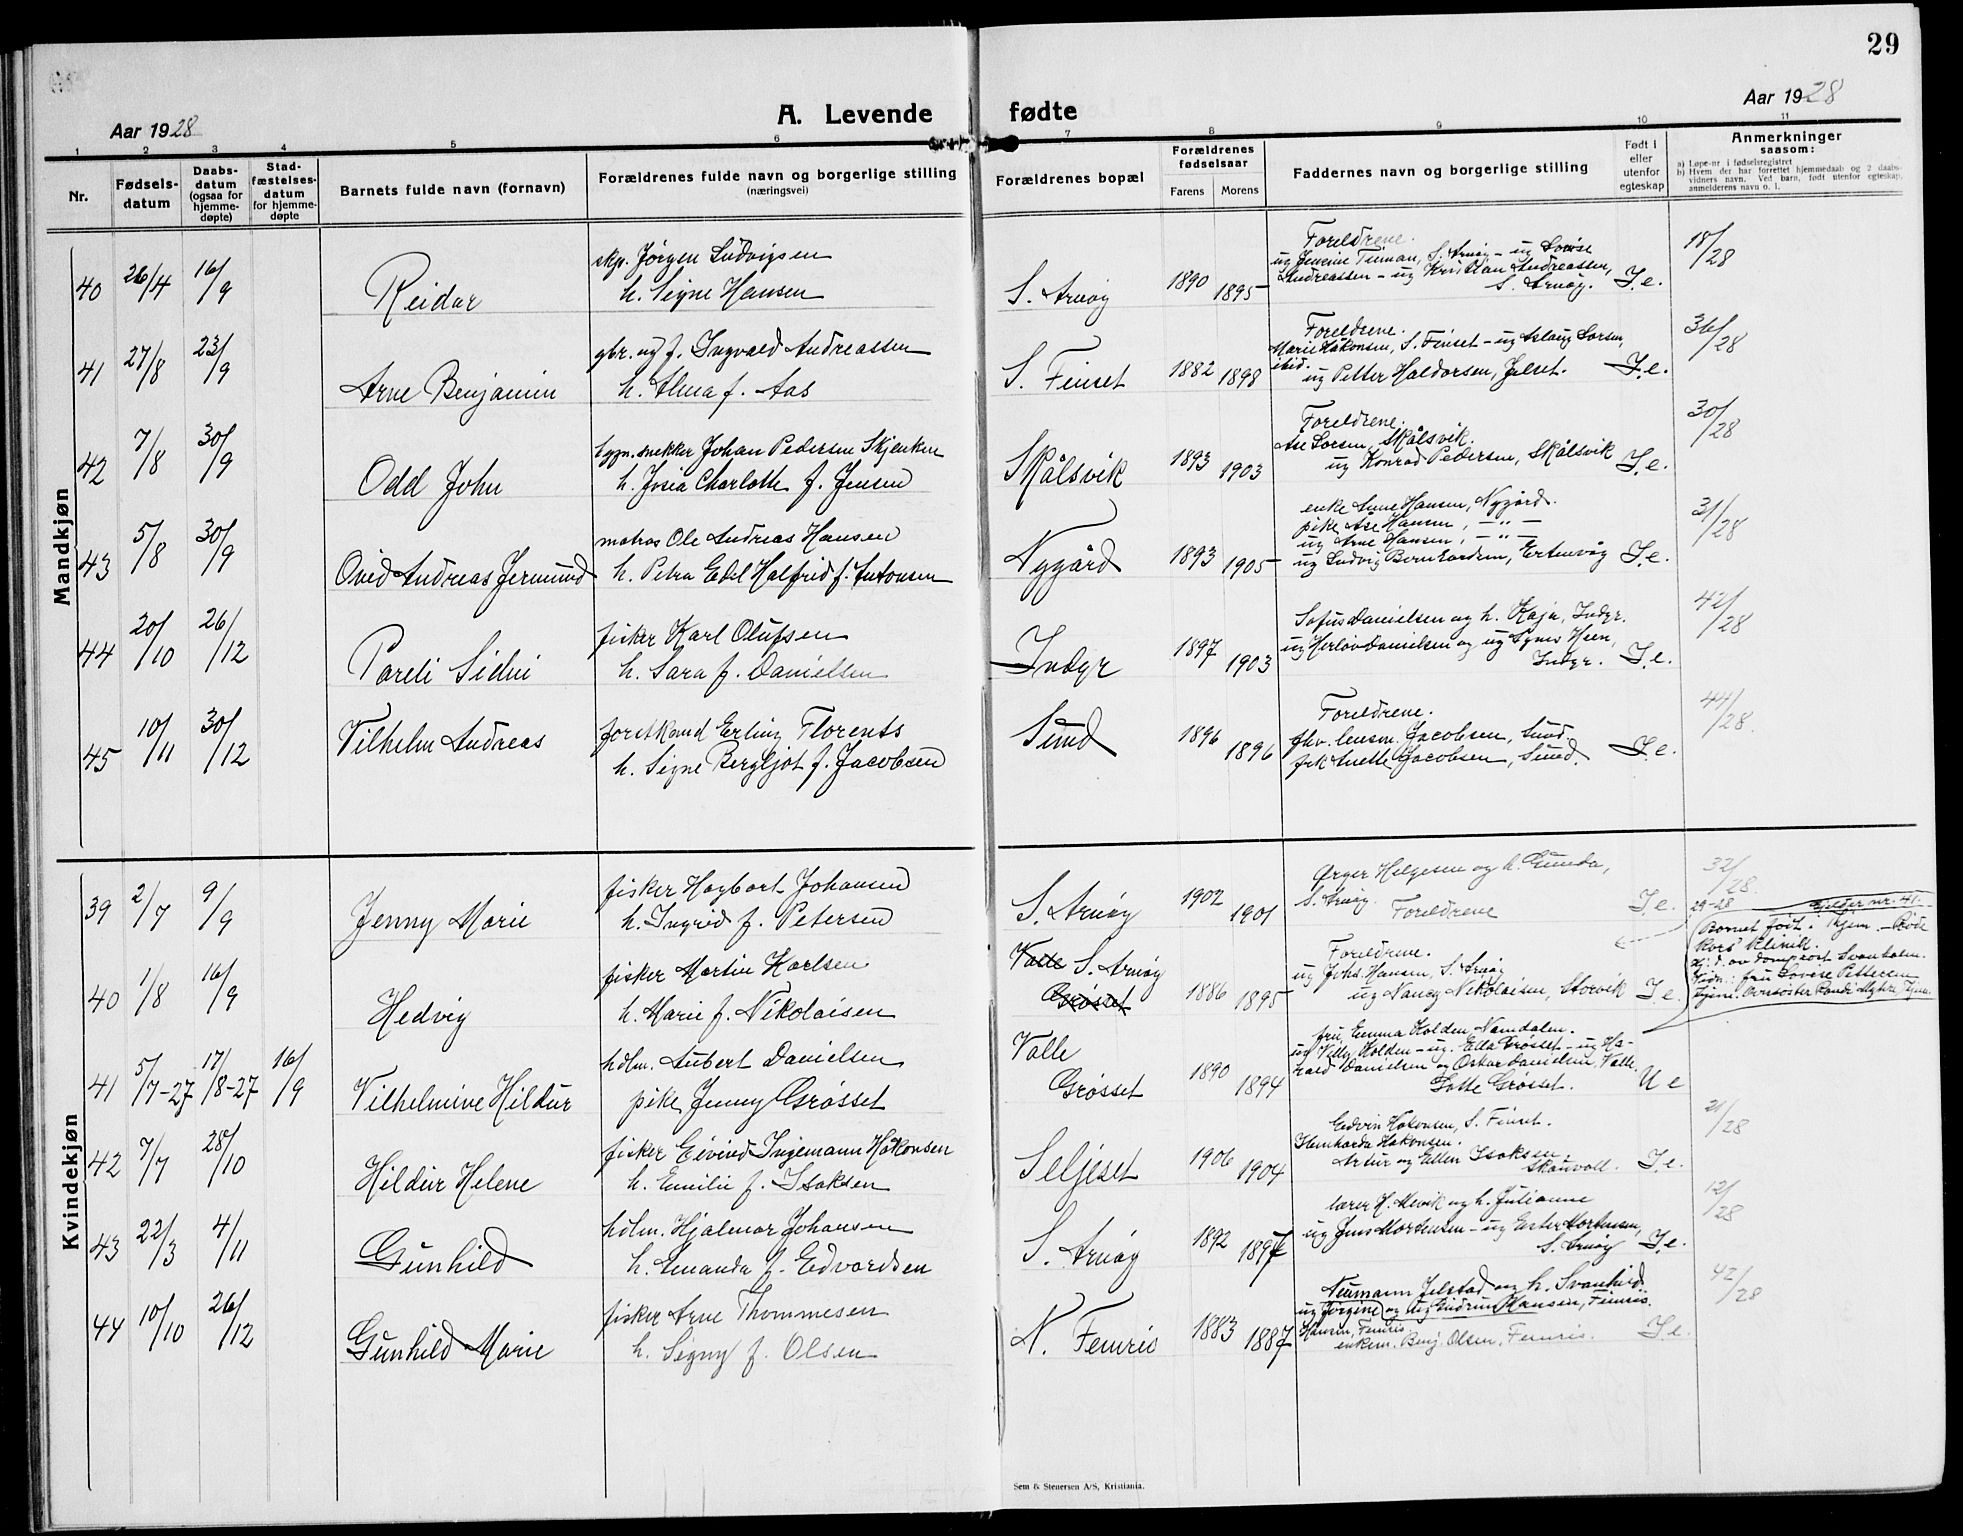 29
Aar 1928
A. Levende fødte
Aar 1928
1 2 3 4 5 6 7 8 9 10 11
Nr.
Fødsels-
datum
Daabs-
datum
(ogsaa for
hjemme-
døpte)
Stad-
fæstelses-
datum
for hjemme-
døpte
Barnets fulde navn (fornavn)
Forældrenes fulde navn og borgerlige stilling
(næringsvei)
Forældrenes bopæl
Forældrenes
fødselsaar
Farens Morens
Faddernes navn og borgerlige stilling
Født i
eller
utenfor
egteskap
Anmerkninger
saasom:
a) Løpe-nr. i fødselsregistret
b) Hvem der har forrettet hjemmedaab og 2 daabs-
vidners navn. Ved barn, født utenfor egteskap,
anmelderens navn o. l.
Mandkjøn
40 26/4 16/9 Reidar
skp. Jörgen Ludvigsen
h. Signe Hansen
S. Arnöy 1890 1895
Foreldrene.
ug Jenine Tuman, S. Arnöy - ug Lovise
Andreassen - ug Kristian Andreassen,
S. Arnöy. I.e.
18/28
41 27/8 23/9 Arne Benjamin
gbr. ug f. Ingvald Andreassen
h. Alma f. Aas
S. Finset 1882 1898
Foreldrene.
Marie Håkonsen, S. Finset - ug Aslaug Larsen,
ibid.
ug Petter Haldorsen, Jelset. I.e.
36/28
42 7/8 30/9 Odd John
bygn. snekker Johan Pedersen Skjenken
h. Josia Charlotte f. Jensen
Skålsvik 1893 1903
Foreldrene.
Åse Larsen, Skålsvik.
ug Konrad Pedersen, Skålsvik I.e.
30/28
43 5/8 30/9 Ovid Andreas Jermund
matros Ole Andreas Hansen
h. Petra Edel Halfrid f. Antonsen
Nygård 1893 1905
enke Anne Hansen, Nygård.
pike Åse Hansen, — " —
ug Arne Hansen, — " —
ug Ludvig Bernhardsen, Ertenvåg I.e.
31/28
44 20/10 26/12 Pareli Sidni
fisker Karl Olufsen
h. Sara f. Danielsen
Indyr 1897 1903
Sofus Danielsen og h. Kaja, Indyr.
ug Herlov Danielsen og ug Agnes Heen,
Indyr. I.e.
42/28
45 10/11 30/12 Vilhelm Andreas
forstkand Erling Florents
h. Signe Bergljot f. Jacobsen
Sund 1896 1896
Foreldrene.
fhv. lensm. Jacobsen, Sund.
frk Anette Jacobsen, Sund. I.e.
44/28.
Kvindekjøn
39 2/7 9/9 Jenny Marie
fisker Hagbart Johansen
h. Ingrid f. Petersen
S. Arnöy 1902 1901
Örger Helgesen og h. Gunda,
S. Arnöy. Foreldrene I.e.
32/28.
40 1/8 16/9 Hedvig
fisker Martin Karlsen
h. Marie f. Nikolaisen
Valle S. Arnöy
Grösset
1886 1895
Foreldrene.
ug Johs. Hansen, S. Arnöy
ug Nancy Nikolaisen, Storvik I.e.
29-28 Gjelder nr. 41.
Barnet født i Thjem. - Röde
Kors' Klinikk.
Hj.d. av domprost Svanholm.
Vidn.: fru Lovise Pettersen
41 5/7-27 17/8-27 16/9 Vilhelmine Hildur
hdlm. Aubert Danielsen
pike Jenny Grösset
Valle
Grösset
1890 1894
fru Emma Holden Namdalen.
ug Villy Holden - ug. Edla Grösset - ug Ha-
rald Danielsen og Oskar Danielsen, Valle,
Lotte Grösset. U e
42 7/7 28/10 Hildur Helene
fisker Eivind Ingemann Håkonsen
h. Emilie f. Isaksen
Seljeset 1906 1904
Edvin Håkonsen, S. Finset.
Artur og Ellen Isaksen,
Skauvoll. I.e.
21/28
43 22/3 4/11 Gunhild
hdlm. Hjalmar Johansen
h. Amanda f. Edvardsen
S. Arnöy 1892 1897
lærer H. Mevik og h. Julianne
ug Jens Mortensen - ug Ester Mortensen,
S. Arnöy I.e.
12/28
44 10/10 26/12 Gunhild Marie
fisker Arne Thommesen
h. Signy f. Olsen
N. Femris 1883 1887
Neumann Jelstad og h. Svanhild
ug Jorgine og ug Gudrun Hansen, Femris.
Hansen, Femris
enkem. Benj. Olsen, Femris. I.e.
42/28
Sem & Stenersen A/S, Kristiania.